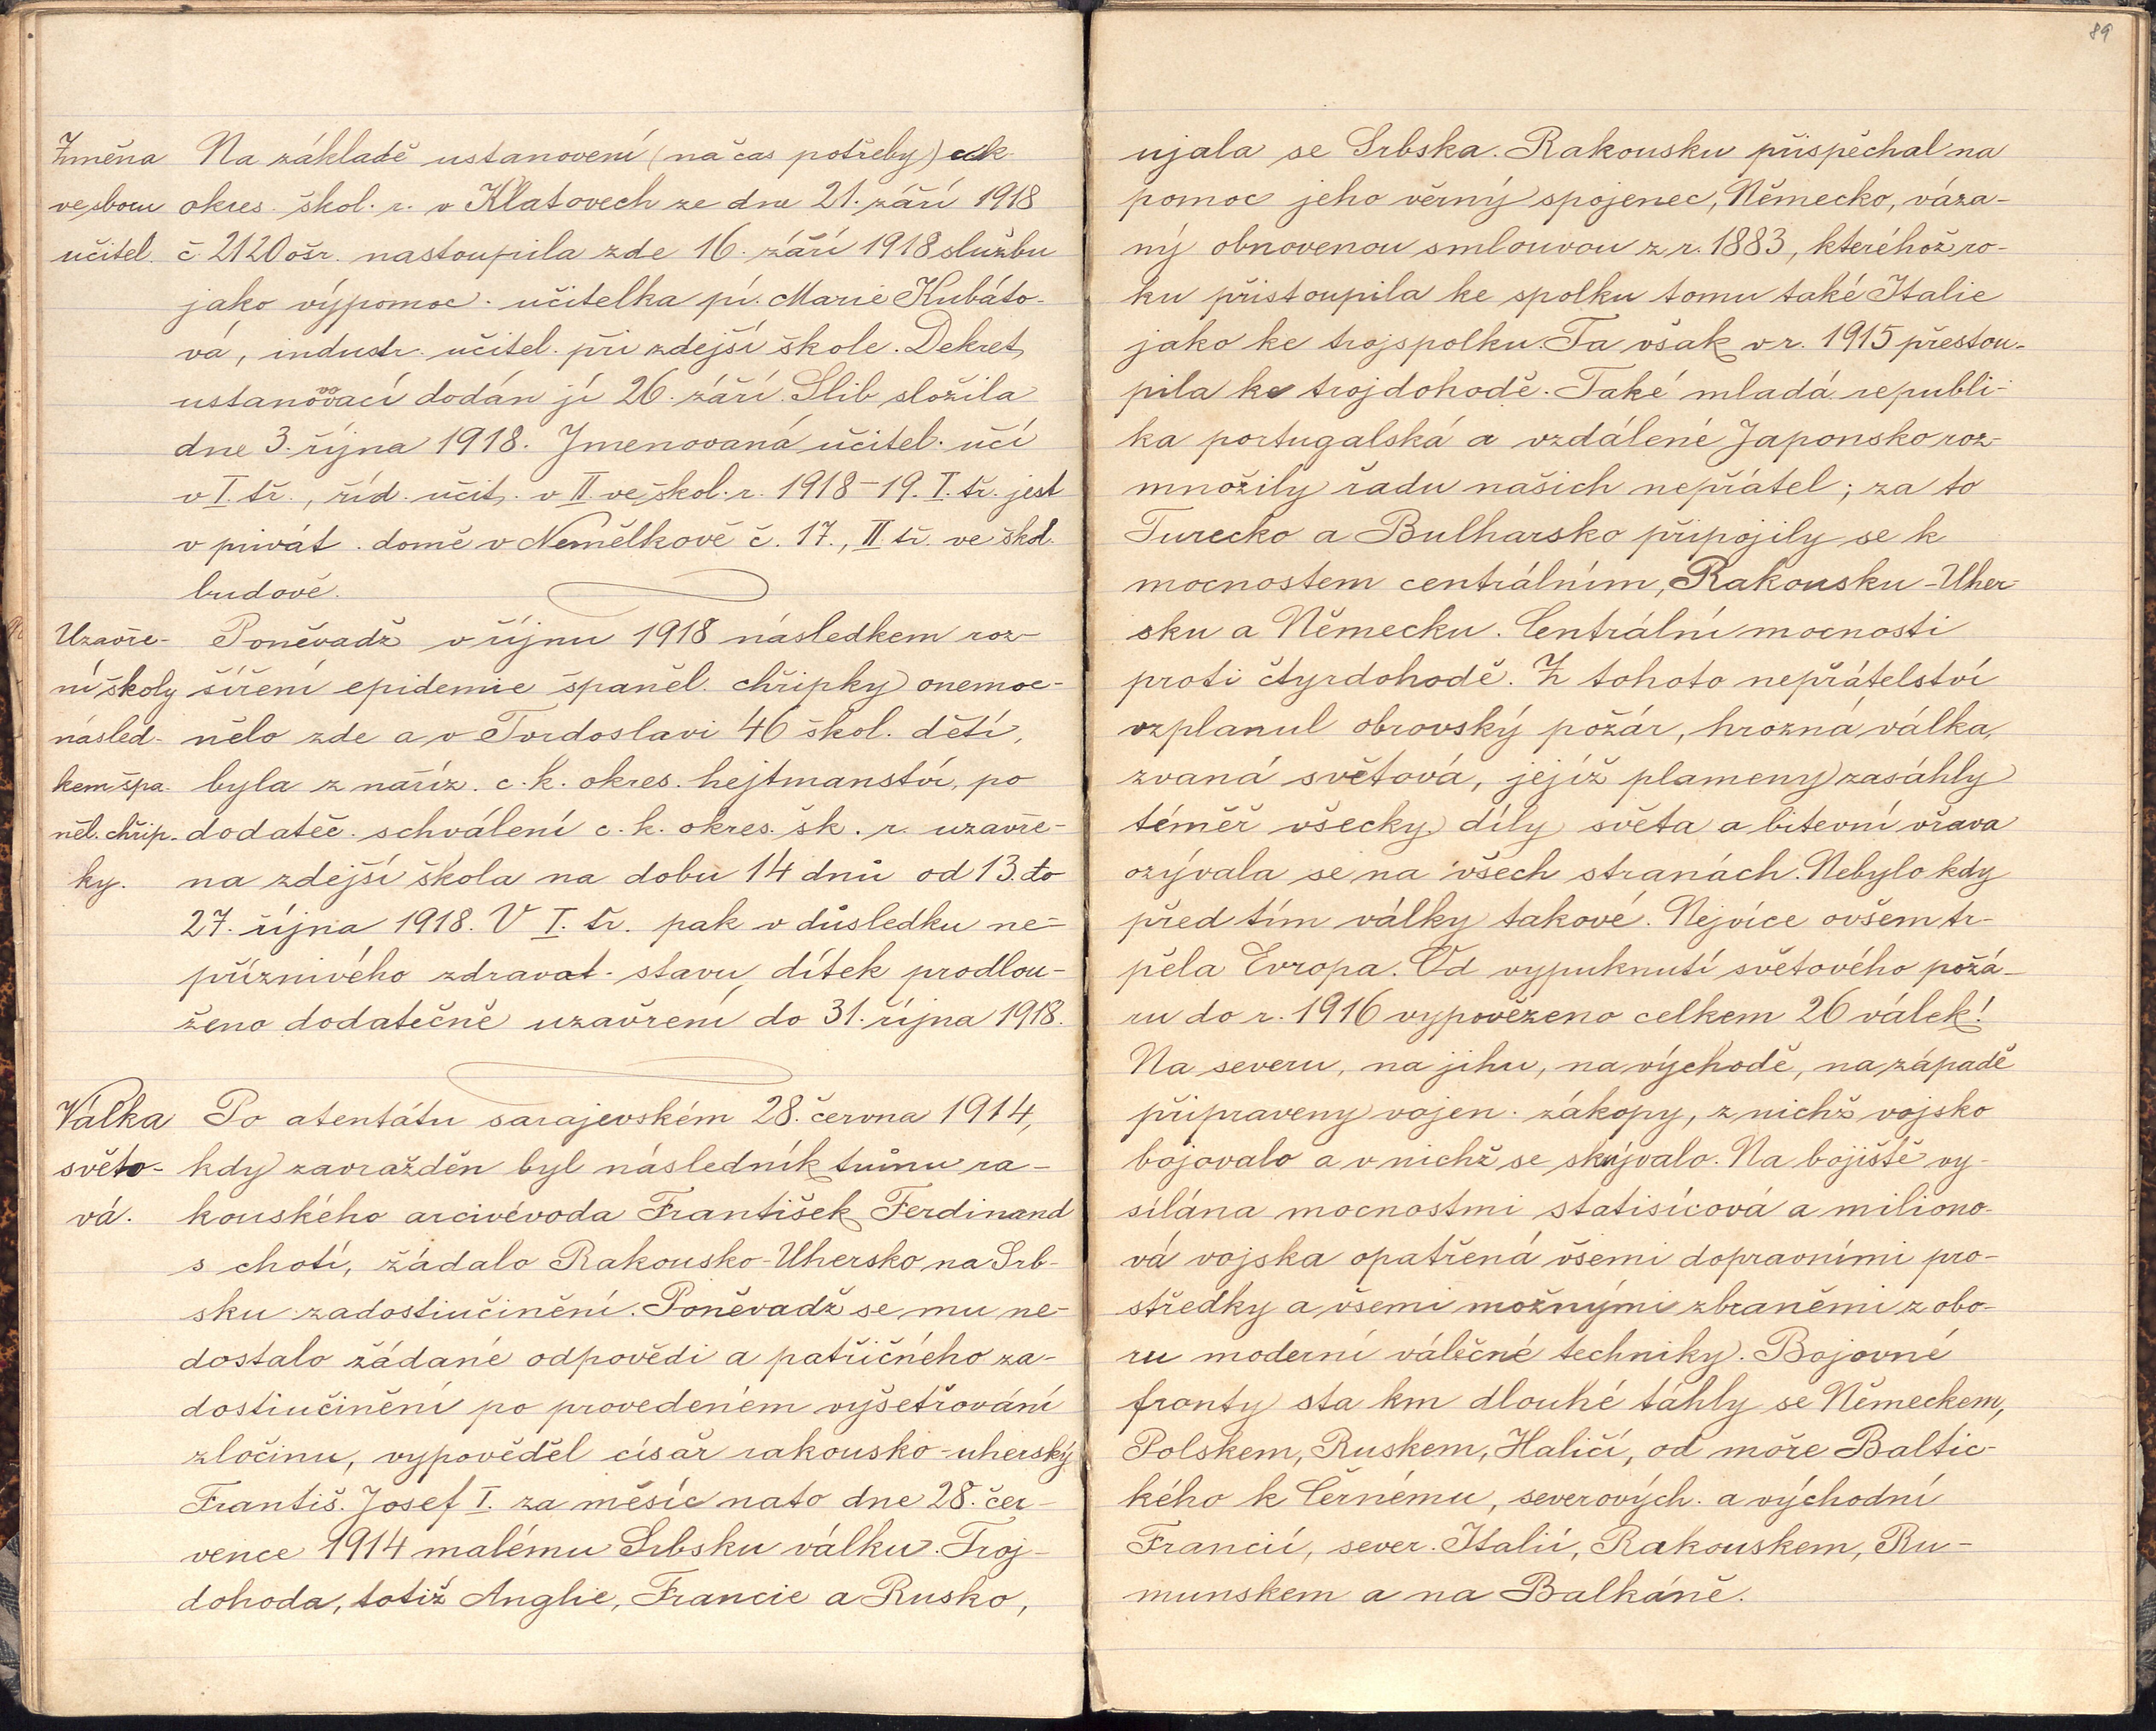 89
Změna Na základě ustanovení (na čas potřeby) cck
ve sboru okres. škol. r. v Klatovech ze dne 21. září 1918
učitel. č. 2120 ošr. nastoupila zde 16. září 1918 službu
jako výpomoc. učitelka pí. Marie Kubáto-
vá, industr. učitel. při zdejší škole. Dekret
ustanovovací dodán jí 26. září. Slib složila
dne 3. října 1918. Jmenovaná učitel. učí
v I. tř., říd. učit. v II. ve škol. r. 1918-19. I. tř. jest
v privát. domě v Nemělkově č. 17., II tř. ve škol.
budově.
Uzavře- Poněvadž v říjnu 1918 následkem roz-
ní školy šíření epidemie španěl. chřipky onemoc-
násled- nělo zde a v Tvrdoslavi 46 škol. dětí,
kem špa- byla z naříz. c. k. okres. hejtmanství, po
něl. chřip- dodateč. schválení c. k. okres. šk. r. uzavře-
ky. na zdejší škola na dobu 14 dnů od 13. do
27. října 1918. V I. tř. pak v důsledku ne-
příznivého zdravot. stavu dítek prodlou-
ženo dodatečně uzavření do 31. října 1918.
Válka Po atentátu sarajevském 28. června 1914,
světo- kdy zavražděn byl následník trůnu ra-
vá. kouského arcivévoda František Ferdinand
s chotí, žádalo Rakousko-Uhersko na Srb-
sku zadostiučinění. Poněvadž se mu ne-
dostalo žádané odpovědi a patřičného za-
dostiučinění po provedeném vyšetřování
zločinu, vypověděl císař rakousko-uherský
Františ. Josef I. za měsíc nato dne 28. čer-
vence 1914 malému Srbsku válku. Troj-
dohoda, totiž Anglie, Francie a Rusko,
ujala se Srbska. Rakousku přispěchal na
pomoc jeho věrný spojenec, Německo, váza-
ný obnovenou smlouvou z r. 1883, kteréhož ro-
ku přistoupila ke spolku tomu také Italie
jako ke trojspolku. Ta však v r. 1915 přestou-
pila ke trojdohodě. Také mladá republi-
ka portugalská a vzdálené Japonsko roz-
množily řadu našich nepřátel; za to
Turecko a Bulharsko připojily se k
mocnostem centrálním, Rakousku-Uher-
sku a Německu. Centrální mocnosti
proti čtyrdohodě. Z tohoto nepřátelství
vzplanul obrovský požár, hrozná válka,
zvaná světová, jejíž plameny zasáhly
téměř všecky díly světa a bitevní vřava
ozývala se na všech stranách. Nebylo kdy
před tím války takové. Nejvíce ovšem tr-
pěla Evropa. Od vypuknutí světového požá-
ru do r. 1916 vypovězeno celkem 26 válek!
Na severu, na jihu, na východě, na západě
připraveny vojen. zákopy, z nichž vojsko
bojovalo a v nichž se skrývalo. Na bojiště vy-
sílána mocnostmi statisícová a miliono-
vá vojska opatřená všemi dopravními pro-
středky a všemi možnými zbraněmi z obo-
ru moderní válečné techniky. Bojovné
fronty sta km dlouhé táhly se Německem,
Polskem, Ruskem, Haličí, od moře Baltic-
kého k Černému, severových. a východní
Francií, sever. Italií, Rakouskem, Ru-
munskem a na Balkáně.